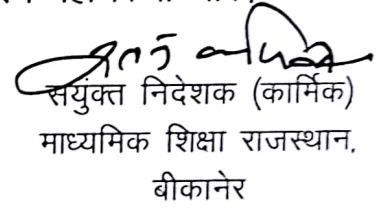 संयुंक्त निदेशक (कार्मिक)
माध्यमिक शिक्षा राजस्थान,
बीकानेर